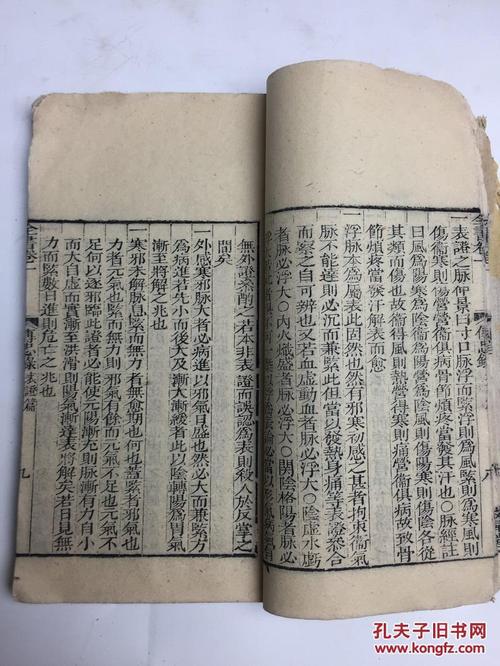 一表證之脉仲景曰寸口脉浮而緊浮則為風緊則為寒風則
傷衛寒則傷營營衛俱病骨節煩疼當發其汗也○脉經註
曰風為陽寒為陰衛為陽營為陰風則傷陽寒則傷陰各從
其類而傷也故衛得風則熱營得寒則痛營衛俱病故致骨
節煩疼當發汗解表而愈
一浮脉本為屬表此固然也然有邪寒初感之甚者拘束衛氣
脉不能達則必沉而兼緊此但當以發熱身痛等表證參合
而察之自可辨也又若血虚動血者脉必浮大○陰虚水虧
者脉必浮大○內火熾盛者脉必浮大○關陰格陽者脉必
無外證參酌之若本非表證而誤認為表則殺人於反掌之
間矣
一外感寒邪脉大者必病進以邪氣日盛也然必大而兼緊方
為病進若先小而後大及漸大漸緩者此以陰轉陽為胃氣
漸至將解之兆也
一寒邪未解脉息緊而無力者無愈期也何也蓋緊者邪氣也
力者元氣也緊而無力則邪氣有餘而元氣不足也元氣不
足何以逐邪臨此證者必能使元陽漸充則脉漸有力自小
而大自虚而實漸至洪滑則陽氣漸達表將解矣若日見無
力而緊數日進則危亡之兆也
全書卷一
傳忠錄 表證篇
九
孔夫子旧书网
www.kongfz.com